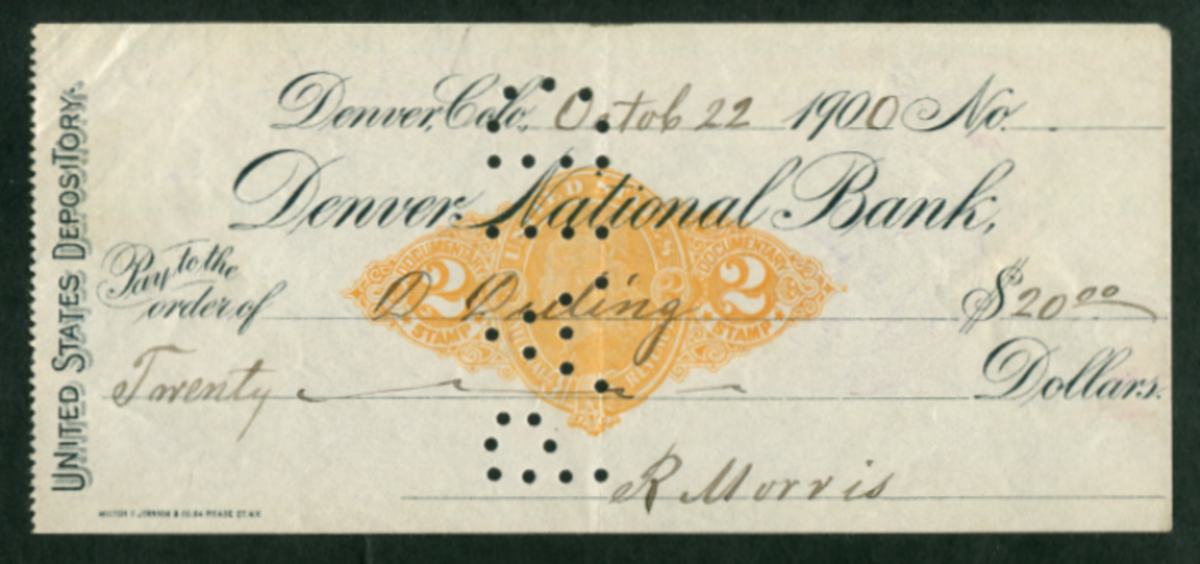 Denver, Colo. Octob 22 1900 No.
Denver National Bank,
Pay to the
order of $ 20 00
Twenty Dollars.
R Morris
UNITED STATES DEPOSITORY.
DOCUMENTARY 2 STAMP
DOCUMENTARY 2 STAMP
UNITED STATES